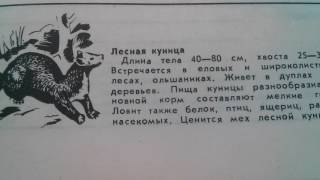 Лесная куница
Длина тела 40—80 см, хвоста 25—3
Встречается в еловых и широколист
лесах, ольшаниках. Живет в дуплах
деревьев. Пища куницы разнообразна
новной корм составляют мелкие г
Ловит также белок, птиц, ящериц, ра
насекомых. Ценится мех лесной кун